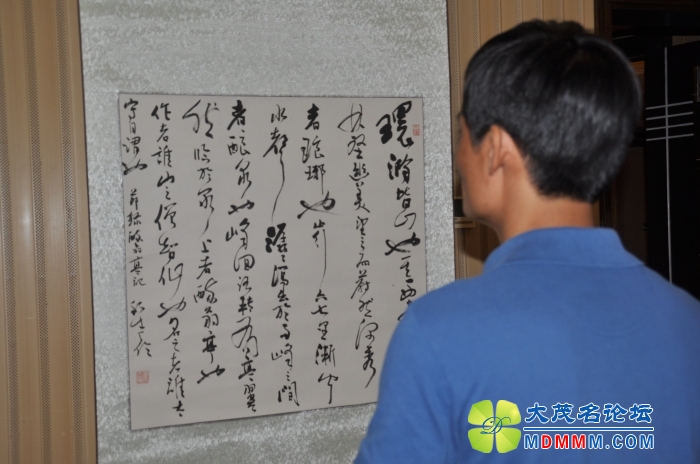 環滁皆山也其西
林壑尤美望之而蔚然深秀
者琅琊也山行六七里漸聞
水聲潺潺瀉出於兩峰之間
者釀泉也峰回路轉有亭翼
然臨於泉上者醉翁亭也
作者誰山之僧智仙也名之者誰太
守自謂也 節錄醉翁亭記
大茂名论坛
MDMMM.COM